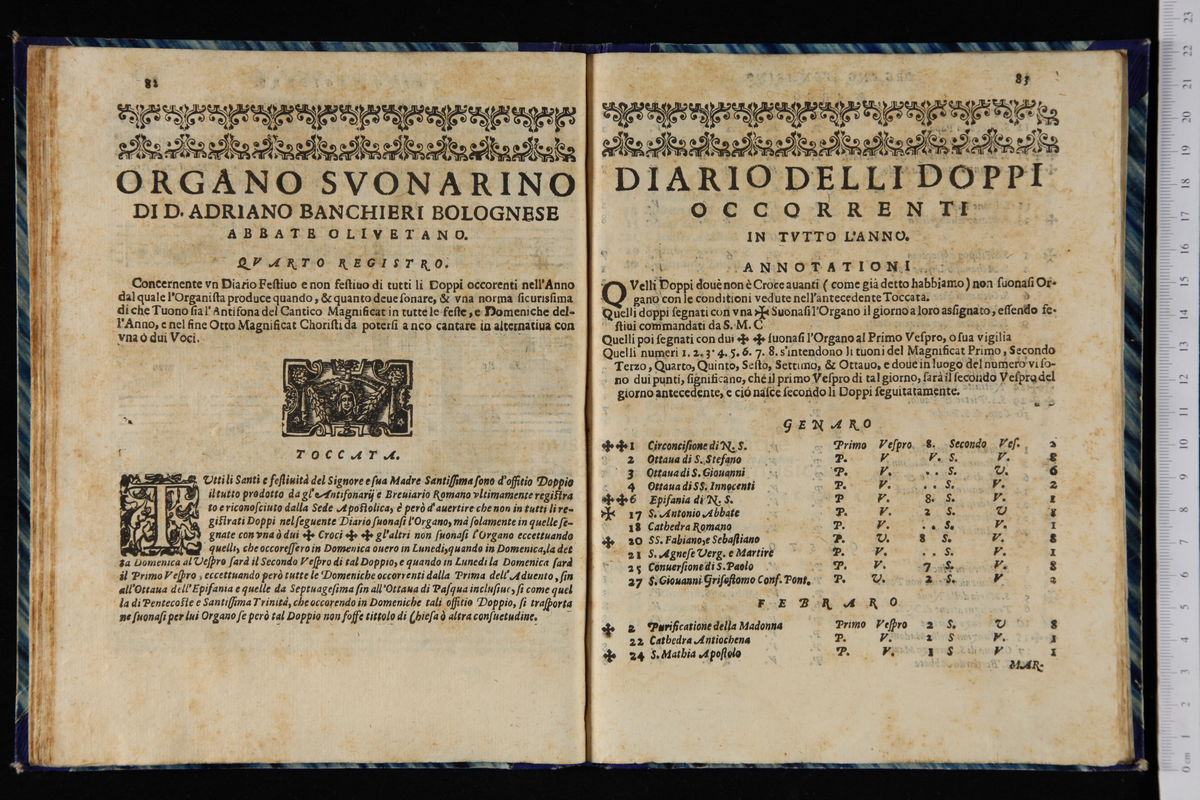 82
ORGANO SVONARINO
DI D. ADRIANO BANCHIERI BOLOGNESE
ABBATE OLIVETANO.
QVARTO REGISTRO.
Concernente vn Diario Festiuo e non festiuo di tutti li Doppi occorenti nell'Anno
dal quale l'Organista produce quando, & quanto deue sonare, & vna norma sicurissima
di che Tuono sia l'Antifona del Cantico Magnificat in tutte le feste, e Domeniche del-
l'Anno, e nel fine Otto Magnificat Choristi da potersi a nco cantare in alternatiua con
vna ò dui Voci.
TOCCATA.
TVtti li Santi e festiuità del Signore e sua Madre Santissima sono d'offitio Doppio
il tutto prodotto da gl'Antifonarij e Breuiario Romano vltimamente registra
to e riconosciuto dalla Sede Apostolica, è però d'auertire che non in tutti li re-
gistrati Doppi nel seguente Diario suonasi l'Organo, mà solamente in quelle se-
gnate con vna ò dui ✠ Croci ✠ ✠ gl'altri non suonasi l'Organo eccettuando
quelli, che occoressero in Domenica ouero in Lunedi, quando in Domenica, la det
ta Domenica al Vespro sarà il Secondo Vespro di tal Doppio, e quando in Lunedi la Domenica sarà
il Primo Vespro, eccettuando però tutte le Domeniche occorenti dalla Prima dell'Aduento, sin
all'Ottaua dell'Epifania e quelle da Septuagesima sin all'Ottaua di Pasqua inclusiue, si come quel
la di Pentecoste e Santissima Trinità, che occorendo in Domeniche tali offitio Doppio, si trasporta
ne suonasi per lui Organo se però tal Doppio non fosse tittolo di Chiesa ò altra consuetudine.
83
DIARIO DELLI DOPPI
OCCORRENTI
IN TVTTO L'ANNO.
ANNOTATIONI
QVelli Doppi doue non è Croce auanti ( come già detto habbiamo ) non suonasi Or-
gano con le conditioni vedute nell'antecedente Toccata.
Quelli doppi segnati con vna ✠ Suonasi l'Organo il giorno a loro assignato, essendo fe-
stiui commandati da S. M. C
Quelli poi segnati con dui ✠ ✠ suonasi l'Organo al Primo Vespro, o sua vigilia
Quelli numeri 1. 2. 3. 4. 5. 6. 7. 8. s'intendono li tuoni del Magnificat Primo, Secondo
Terzo, Quarto, Quinto, Sesto, Settimo, & Ottauo, e doue in luogo del numero vi so-
no dui punti, significano, che il primo Vespro di tal giorno, sarà il secondo Vespro del
giorno antecedente, e ciò nasce secondo li Doppi seguitatamente.
GENARO
✠✠ 1 Circoncisione di N. S. Primo Vespro 8. Secondo Ves. 2
2 Ottaua di S. Stefano P. V V. S. V. 8
3 Ottaua di S. Giouanni P. V. .. S. V. 6
4 Ottaua di SS. Innocenti P. V. .. S. V. 2
✠✠ 6 Epifania di N. S. P V. 8. S. V. 1
✠ 17 S. Antonio Abbate P. V. 2 S. V 8
18 Cathedra Romano P. V. .. S. V. 1
✠ 20 SS. Fabiano, e Sebastiano P. V. 8 S. V. 8
21 S. Agnese Verg. e Martire P. V. .. S. V. 1
25 Conuersione di S. Paolo P. V. 7 S. V. 8
27 S. Giouanni Grisostomo Conf. Pont. P. V. 2 S. V 2
FEBRARO
✠ 2 Purificatione della Madonna Primo Vespro 2 S. V 8
22 Cathedra Antiochena P. V. 2 S V. 1
✠ 24 S. Mathia Apostolo P. V. 1 S V 1
MAR-